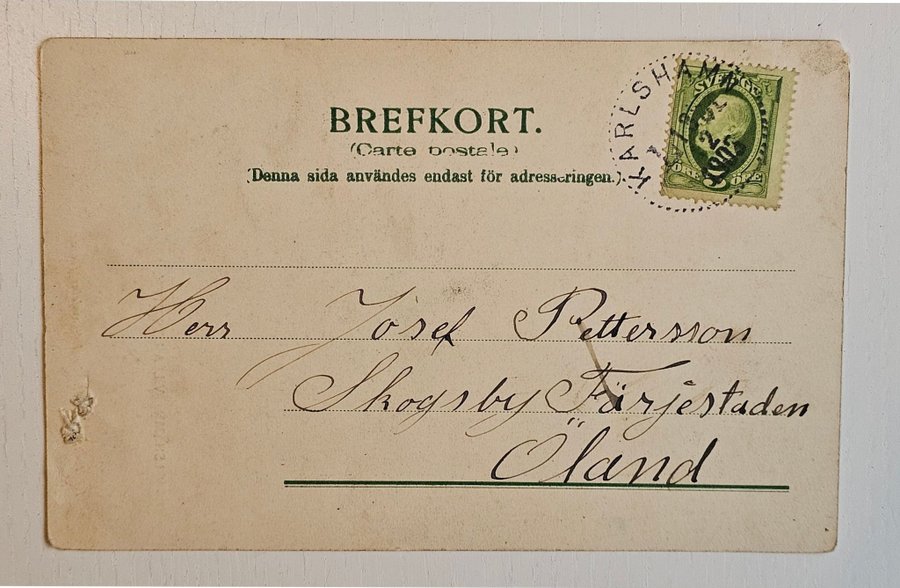 BREFKORT.
(Carte postale)
(Denna sida användes endast för adresseringen.)
KARLSHAMN
1902
Herr Josef Pettersson
Skogsby Färjestaden
Öland